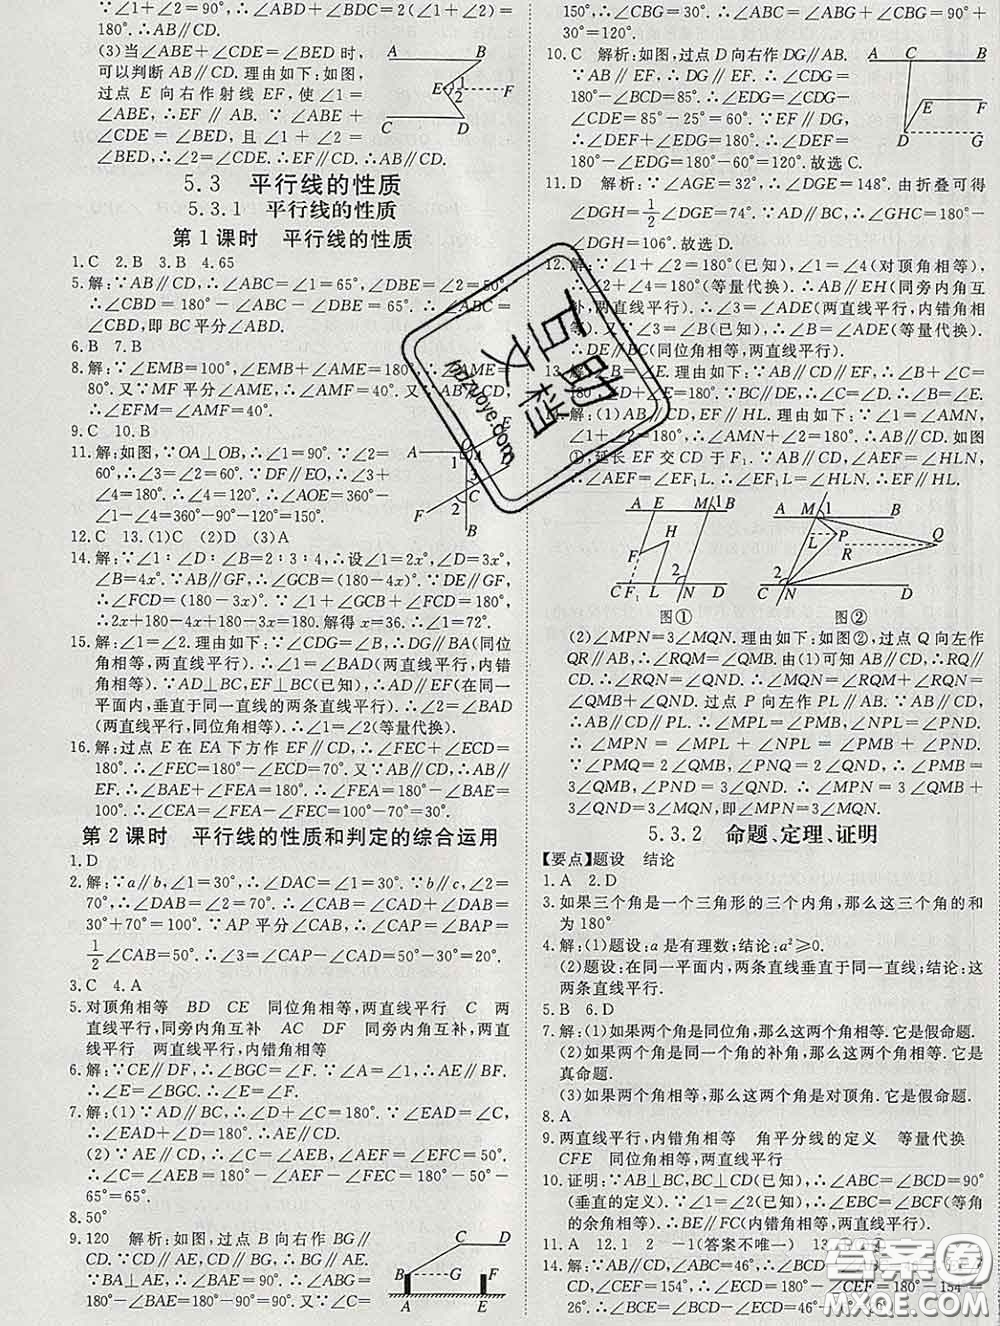 ∵∠1+∠2=∠BDC+∠ABD=2(∠1+∠2)=
180°.∴AB∥CD.
(3)当∠ABE+∠CDE=∠BED时,
可以判断AB∥CD.理由如下:如图,
过点 E 向右作射线 EF,使∠1=
∠ABE,∴EF∥AB.∵∠ABE+
∠CDE=∠BED,且∠1+∠2=
∠BED,∴∠2=∠CDE.∴EF∥CD.∴AB∥CD.
A B
E 1 2 F
C D
5.3 平行线的性质
5.3.1 平行线的性质
第1课时 平行线的性质
1.C 2.B 3.B 4.65
5.解:∵AB∥CD,∴∠ABC=∠1=65°,∠DBE=∠2=50°.
∴∠CBD=180°-∠ABC-∠DBE=65°.∴∠ABC=
∠CBD,即BC平分∠ABD.
6.B 7.B
8.解:∵∠EMB=100°,∠EMB+∠AME=180°,∴∠AME=
80°.又∵MF平分∠AME,∴∠AMF=40°.又∵AB∥CD,
∴∠EFM=∠AMF=40°.
9.C 10.B
11.解:如图,∵OA⊥OB,∴∠1=90°.∵∠2=
60°,∴∠3=∠2=60°.∵DF∥EO,∴∠3+
∠4=180°.∴∠4=120°.∴∠AOE=360°-
∠1-∠4=360°-90°-120°=150°.
A O E
1 4 3 D
C 2
F B
12.C 13.(1)C (2)D (3)A
14.解:∵∠1:∠D:∠B=2:3:4,∴设∠1=2x°,∠D=3x°,
∠B=4x°.∵AB∥GF,∴∠GCB=(180-4x)°.∵DE∥GF,
∴∠FCD=(180-3x)°.∵∠1+∠GCB+∠FCD=180°,
∴2x+180-4x+180-3x=180.解得x=36.∴∠1=72°.
15.解:∠1=∠2.理由如下:∵∠CDG=∠B,∴DG∥BA(同位
角相等,两直线平行).∴∠1=∠BAD(两直线平行,内错
角相等).∵AD⊥BC,EF⊥BC(已知),∴AD∥EF(在同一
平面内,垂直于同一直线的两条直线平行).∴∠2=∠BAD
(两直线平行,同位角相等).∴∠1=∠2(等量代换).
16.解:过点E在EA下方作EF∥CD,∴∠FEC+∠ECD=
180°.∴∠FEC=180°-∠ECD=70°.又∵AB∥CD,∴AB∥
EF.∴∠BAE+∠FEA=180°.∴∠FEA=180°-∠BAE=
100°.∴∠CEA=∠FEA-∠FEC=100°-70°=30°.
第2课时 平行线的性质和判定的综合运用
1.D
2.解:∵a∥b,∠1=30°,∴∠DAC=∠1=30°.∵b∥c,∠2=
70°,∴∠DAB=∠2=70°.∴∠CAB=∠CAD+∠DAB=
30°+70°=100°.∵AP平分∠CAB,∴∠CAP=∠BAP=
1/2∠CAB=50°.∴∠3=∠CAP-∠CAD=50°-30°=20°.
3.C 4.A
5.对顶角相等 BD CE 同位角相等,两直线平行 C 两
直线平行,同旁内角互补 AC DF 同旁内角互补,两直
线平行 两直线平行,内错角相等
6.解:∵CE∥DF,∴∠BGC=∠F.∵∠A=∠1,∴AE∥BF.
∴∠E=∠BGC.∴∠E=∠F.
7.解:(1)∵AD∥BC,∴∠D+∠C=180°.∵∠EAD=∠C,
∴∠EAD+∠D=180°.∴AE∥CD.
(2)∵AE∥CD,∴∠AEB=∠C.∵∠FEC=∠BAE,
∴∠C=∠AEB=180°-∠AEF-∠EFC=180°-50°-
65°=65°.
8.50°
9.120 解析:如图,过点B向右作BG∥
CD.∵CD∥AE,∴BG∥AE.∵
BA⊥AE,∴∠BAE=90°.∴∠ABG=
180°-∠BAE=90°.又∵∠ABC=
C D
B G
A E
150°,∴∠CBG=30°.∴∠ABC+∠C=∠ABG+90°+
30°=120°.
10.C 解析:如图,过点D向右作DG∥AB.
∵AB∥EF,∴DG∥EF.∵AB∥CD,
180°-∠BCD=85°.∴∠EDG=∠CDG-
∠CDE=85°-25°=60°.∵DG∥EF,
∴∠DEF+∠EDG=180°.∴∠DEF=
180°-∠EDG=120°.故选C.
A C B
E F
D G
11.D 解析:∵∠AGE=32°,∴∠DGE=148°.由折叠可得
∠DGH=1/2∠DGE=74°.∵AD∥BC,∴∠GHC=180°-
∠DGH=106°.故选D.
12.解:∵∠1+∠2=180°(已知),∠1=∠4(对顶角相等),
∴∠2+∠4=180°(等量代换).∴AB∥EH(同旁内角互
补,两直线平行).∴∠3=∠ADE(两直线平行,内错角相
等).∵∠3=∠B(已知),∴∠B=∠ADE(等量代换).
∴DE∥BC(同位角相等,两直线平行).
13.解:∠B=∠E.
14.解:(1)AB∥CD,EF∥HL.理由如下:∵∠1=∠AMN,
∠1+∠2=180°,∴∠AMN+∠2=180°.∴AB∥CD.如图
①,延长EF交CD于F₁.∵∠AEF=∠HLN,
∴∠AEF=∠EF₁L.∴∠EF₁L=∠HLN.∴EF∥HL.
A E M 1 B
H
F
2
C F₁ L N D
图①
A M 1 B
L P
R Q
2
C N D
图②
(2)∠MPN=3∠MQN.理由如下:如图②,过点Q向左作
QR∥AB,∴∠RQM=∠QMB.由(1)可知AB∥CD,∴RQ∥
CD.∴∠RQN=∠QND.∴∠MQN=∠RQM+∠RQN=
∠QMB+∠QND.过点P向左作PL∥AB.∵AB∥CD,
∴AB∥CD∥PL.∴∠MPL=∠PMB,∠NPL=∠PND.
∴∠MPN=∠MPL+∠NPL=∠PMB+∠PND.
∵∠PMQ=2∠QMB,∠PNQ=2∠QND,∴∠PMB=
3∠QMB,∠PND=3∠QND.∴∠MPN=3∠QMB+
3∠QND=3(∠QMB+∠QND),即∠MPN=3∠MQN.
5.3.2 命题、定理、证明
【要点】题设 结论
1.A 2.D
3.如果三个角是一个三角形的三个内角,那么这三个角的和
为180°
4.解:(1)题设:a是有理数;结论:a²≥0.
(2)题设:在同一平面内,两条直线垂直于同一直线;结论:这
两条直线平行.
5.B 6.D
7.解:(1)如果两个角是同位角,那么这两个角相等.它是假命题.
(2)如果两个角是同一个角的补角,那么这两个角相等.它是
真命题.
(3)如果两个角相等,那么这两个角是对顶角.它是假命题.
8.A
9.两直线平行,内错角相等 角平分线的定义 等量代换
CFE 同位角相等,两直线平行
10.证明:∵AB⊥BC,BC⊥CD(已知),∴∠ABC=∠BCD=90°
(垂直的定义).∵∠1=∠2(已知),∴∠EBC=∠BCF(等角
的余角相等).∴BE∥FC(内错角相等,两直线平行).
11.A 12.1 2 -1(答案不唯一) 13.
14.解:∵AB∥CD,∠ABC=46°,∴∠BCD=∠ABC=46°.
CD,∠CEF=154°,∴∠ECD=180°-∠CEF=180°-154°=
26°.∴∠BCE=∠BCD-∠ECD=46°-26°=20°.
互助文档
hzzuoye.com
答案圈
MXQE.COM